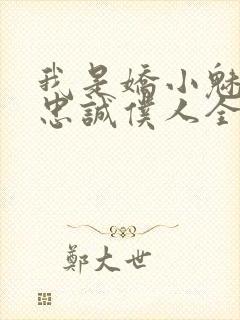 我是嬌小魅
忠誠僕人全
鄭大世